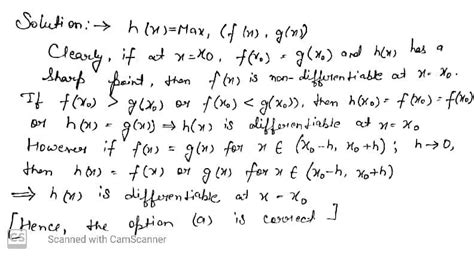 Solution:→ h(x)=Max, (f(x), g(x))
Clearly, if at x=x0, f(x₀) = g(x₀) and h(x) has a
Sharp point, then f(x) is non-differentiable at x=x₀.
If f(x₀) > g(x₀) or f(x₀) < g(x₀)), then h(x₀) = f(x₀) = f(x₀)
or h(x) = g(x)] ⇒ h(x) is differentiable at x = x₀
However if f(x) = g(x) for x ∈ (x₀-h, x₀+h) ; h→0,
then h(x) = f(x) or g(x) for x ∈ (x₀-h, x₀+h)
⇒ h(x) is differentiable at x = x₀
[Hence, the option (a) is correct]
CS Scanned with CamScanner